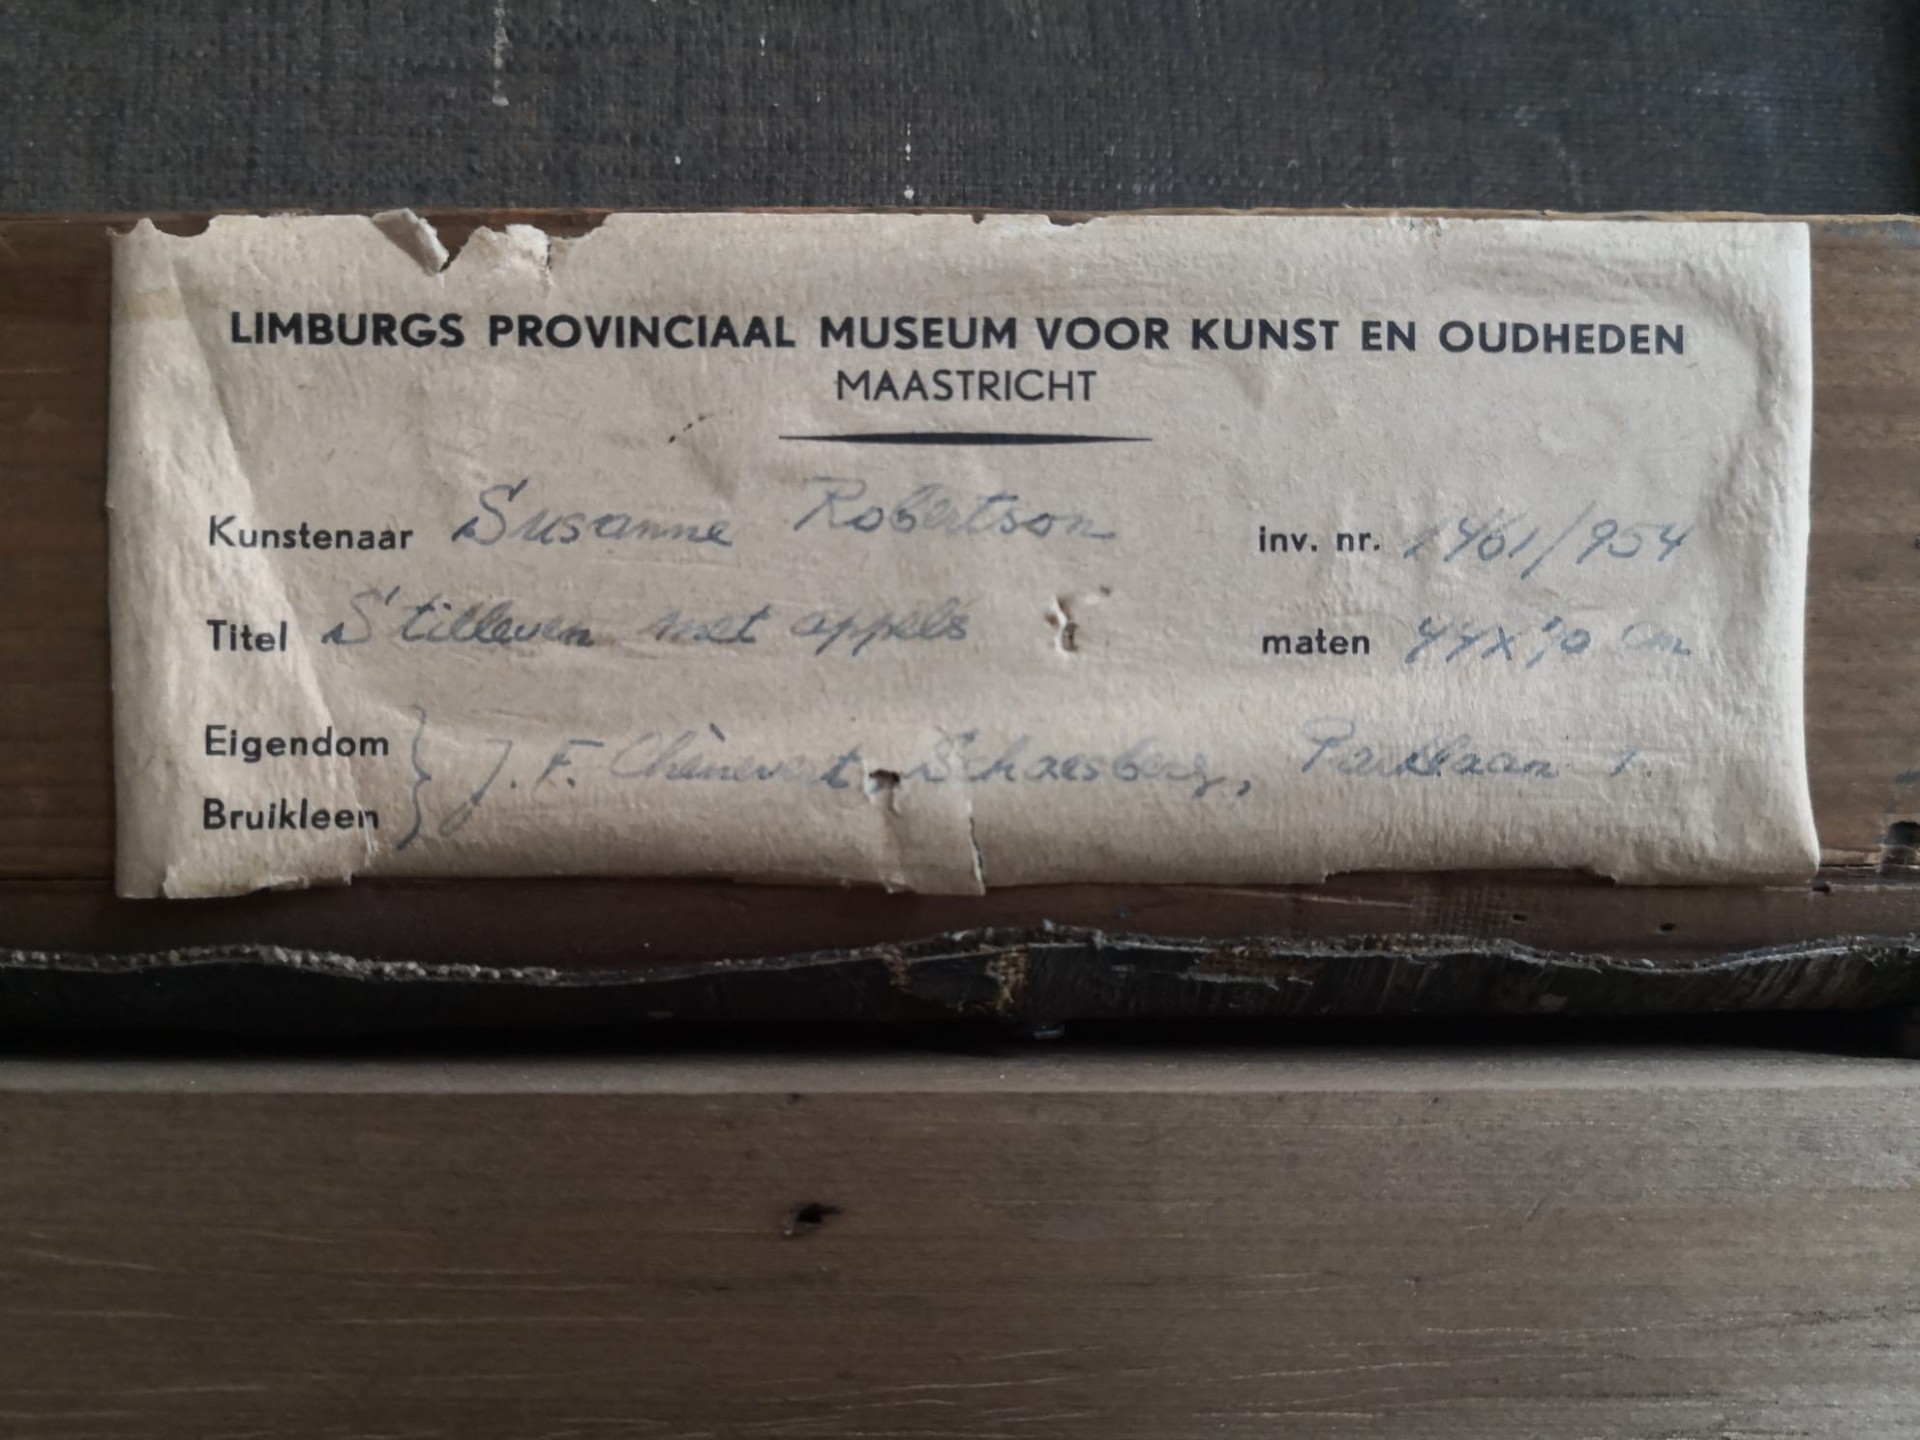 LIMBURGS PROVINCIAAL MUSEUM VOOR KUNST EN OUDHEDEN
MAASTRICHT
Kunstenaar Susanne Robertson inv. nr. 1461/954
Titel Stilleven met appels maten cm
Eigendom
Bruikleen } J. F. Chènevert, Schaesberg, Parklaan 1.